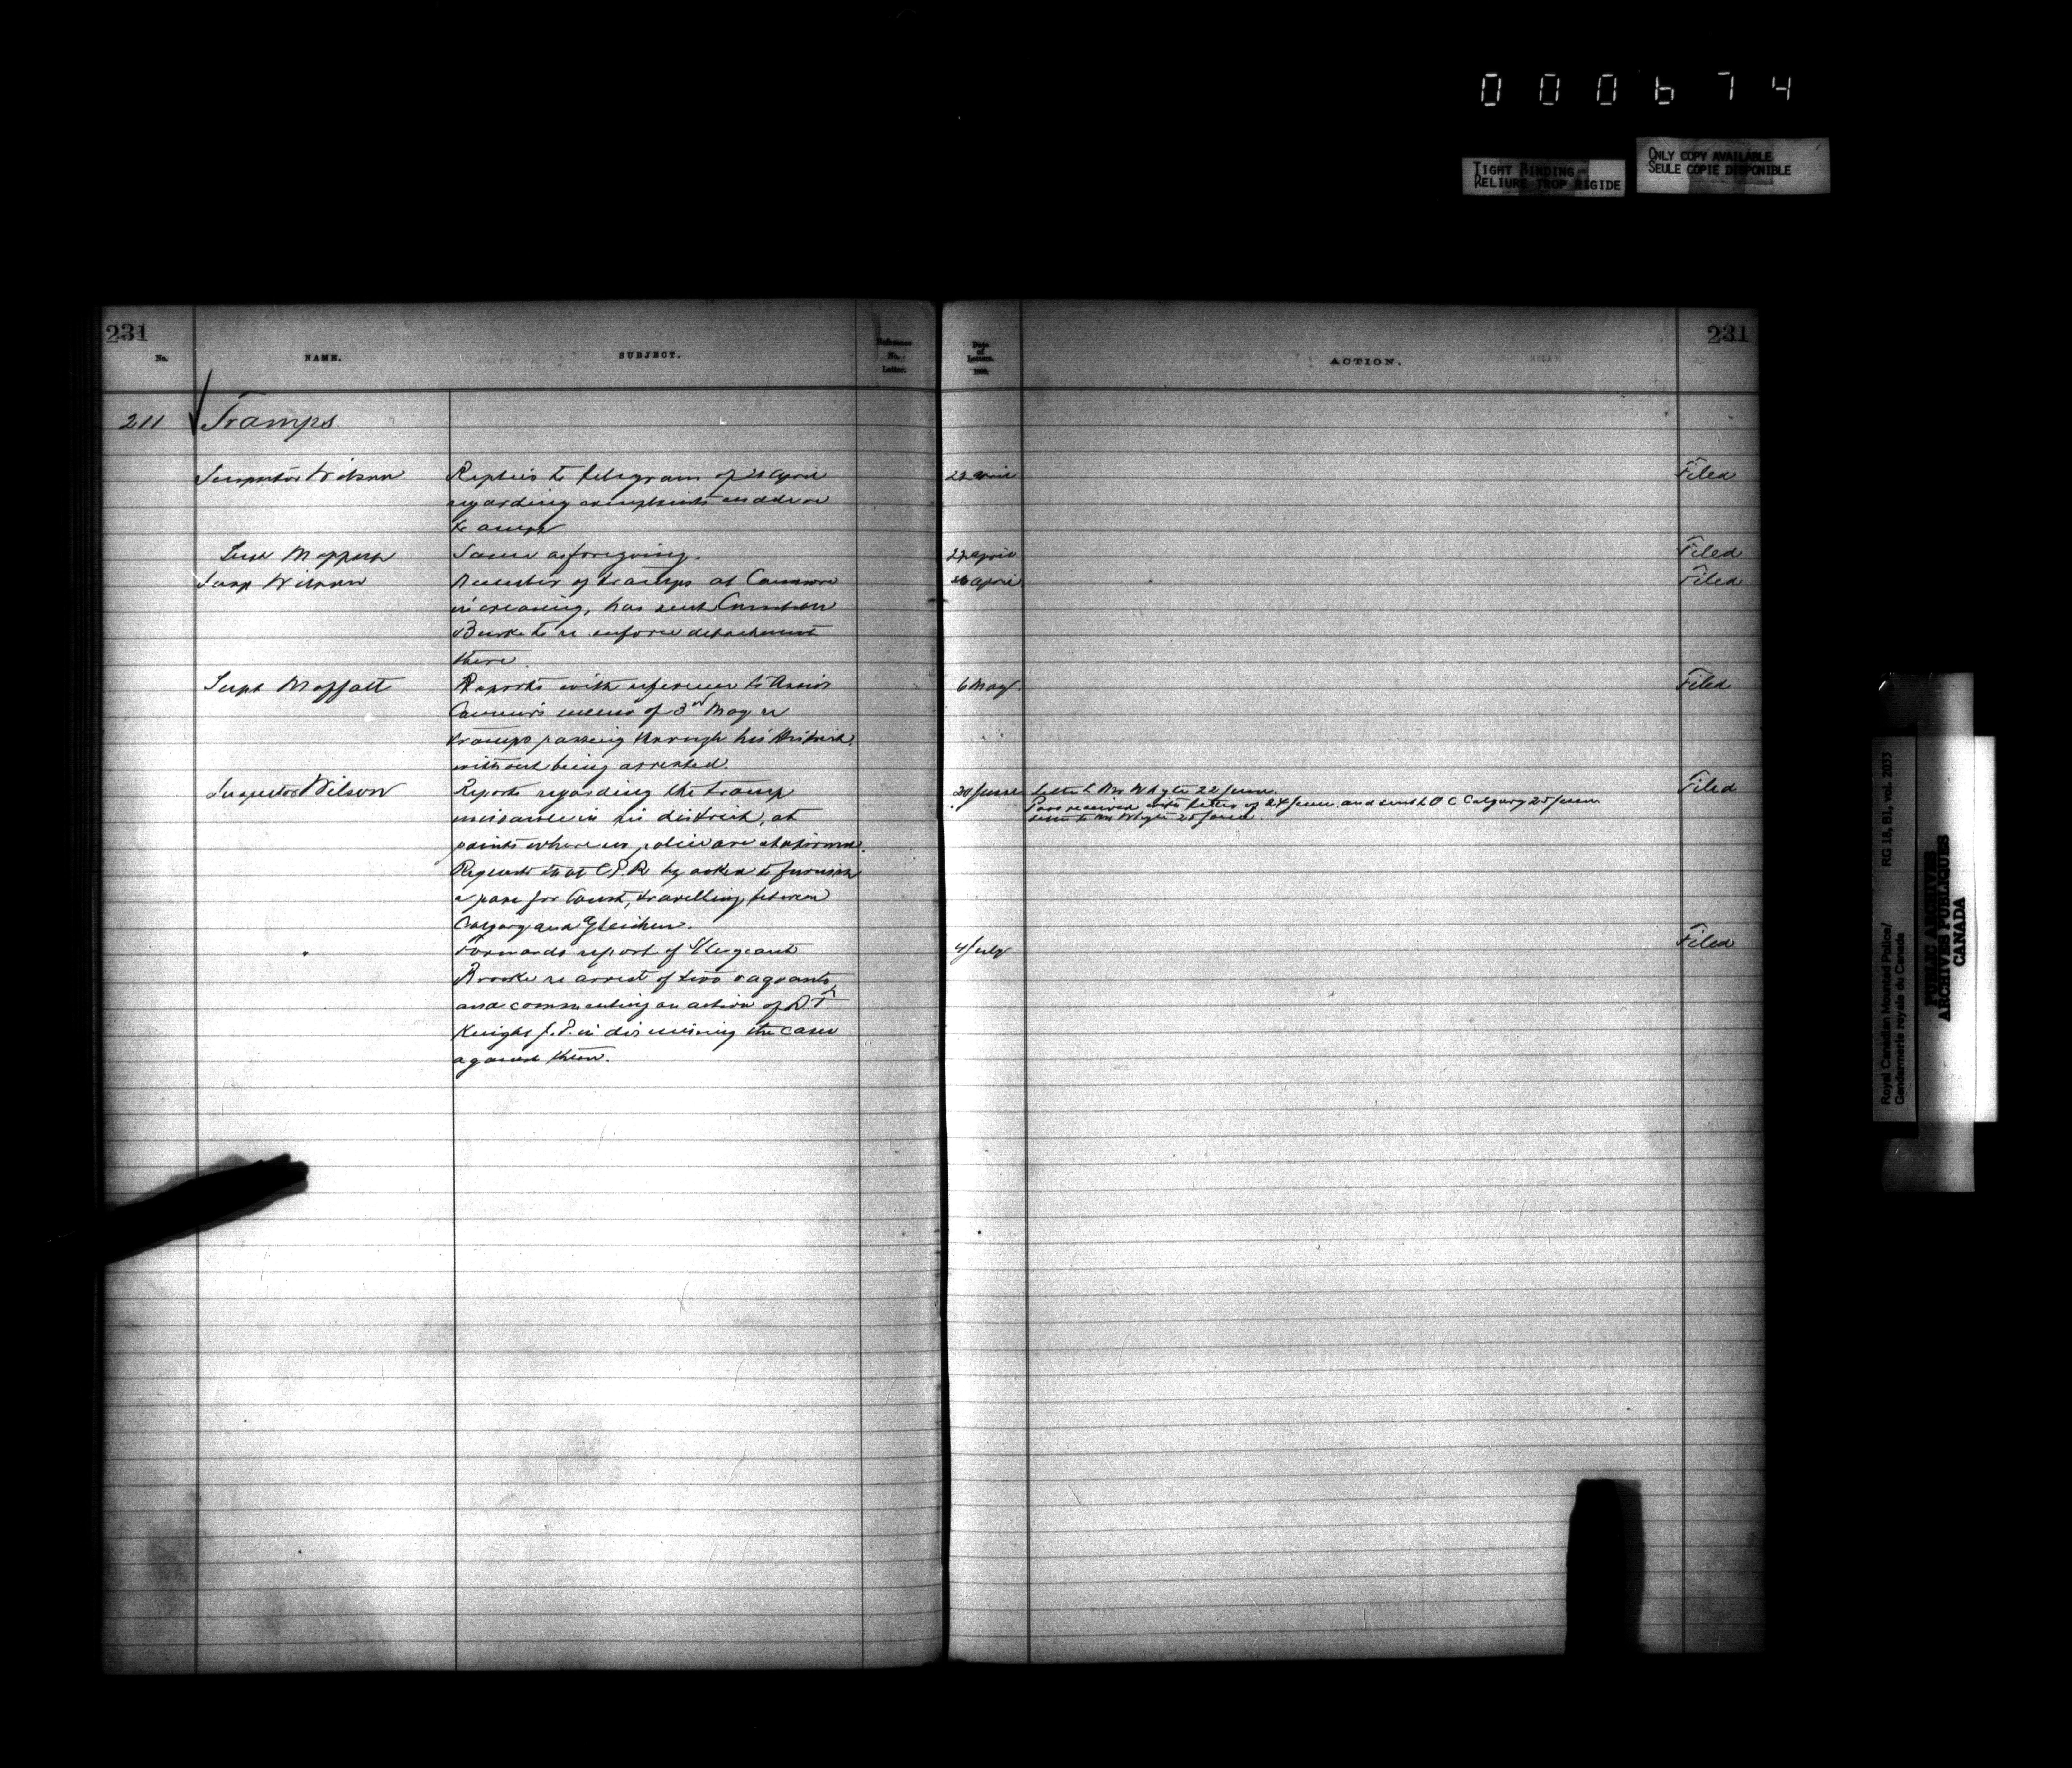 000674
TIGHT BINDING
RELIURE TROP RIGIDE
ONLY COPY AVAILABLE
SEULE COPIE DISPONIBLE
231
No.
NAME.
SUBJECT.
Reference
No.
Letter.
Date
of
Letters.
ACTION.
231
211 Tramps
Inspector Wilson Replies to telegram of April 22 April Filed
regarding complaints made re
tramps
Supt Moffatt Same as foregoing. April Filed
Insp Wilson Number of tramps at Canmore April Filed
increasing, has sent Constable
Burke to re enforce detachment
there.
Supt Moffatt Reports with reference to Assis 6 May Filed
Commr's memo of 3rd May re
tramps passing through his district
without being arrested.
Inspector Wilson Reports regarding the tramp 20 June Letter to Mr Whyte 22 June. Filed
nuisance in his district, at Pass received with letter of 24 June and sent to O C Calgary 25 June
points where no police are stationed. Letter to Mr Whyte 25 June.
Requests that C.P.R. be asked to furnish
a pass for Const, travelling between
Calgary and Gleichen.
" Forwards report of S/Sergeant 4 July Filed
Brooke re arrest of two vagrants,
and commenting on action of Dr
Knight J.P. in dismissing the case
against them.
Royal Canadian Mounted Police/ RG 18, B1, vol. 2033
Gendarmerie royale du Canada
PUBLIC ARCHIVES
ARCHIVES PUBLIQUES
CANADA